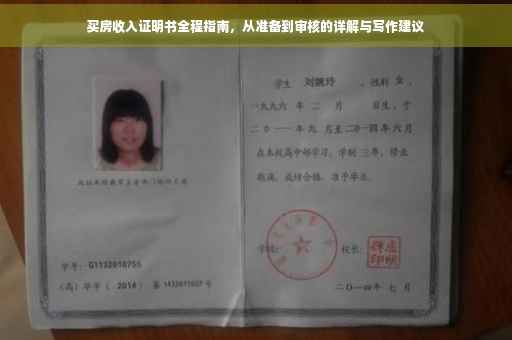 买房收入证明书全程指南，从准备到审核的详解与写作建议
学生 刘婉玲 ，性别 女 ，
一九九六 年 二 月 日生，于
二〇一一年九 月至二〇一四年 六月
在本校高中部学习，学制 三年，修业
期满，成绩合格，准予毕业。
学校：
校长：
二〇一四年 七 月
学号：G1132010755
（高）毕字（ 2014 ）第 1432011037 号